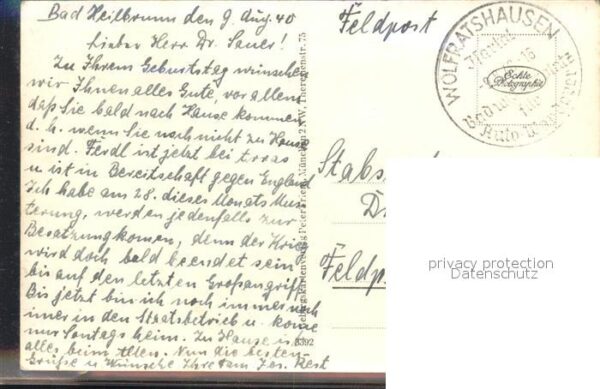 Bad Heilbrunn den 9. Aug. 40
Lieber Herr Dr. Sauer!
Zu Ihrem Geburtstag wünschen
wir Ihnen alles Gute, vor allem
daß Sie bald nach Hause kommen
d. h. wenn Sie noch nicht zu Hause
sind. Ferdl ist jetzt bei
u. ist in Bereitschaft gegen England
Ich habe am 28. dieses Monats Mus-
terung, werden jedenfalls zur
Besatzung kommen, denn der Krieg
wird doch bald beendet sein
bis auf den letzten Großangriff.
Bis jetzt bin ich noch immer nach
immer in den Staatsbetrieb u. komme
nur Sontags heim. Zu Hause is
alles beim Alten. Nun die besten
Grüße u. Wünsche Ihre Fam. Jos. Rest
Feldpost
WOLFRATSHAUSEN
16
Echte
Photographie
Stabs
Dr
Feldp
Gebirgskartenverlag Peter Friedl, München 2 NW, Theresienstr. 75
privacy protection
Datenschutz